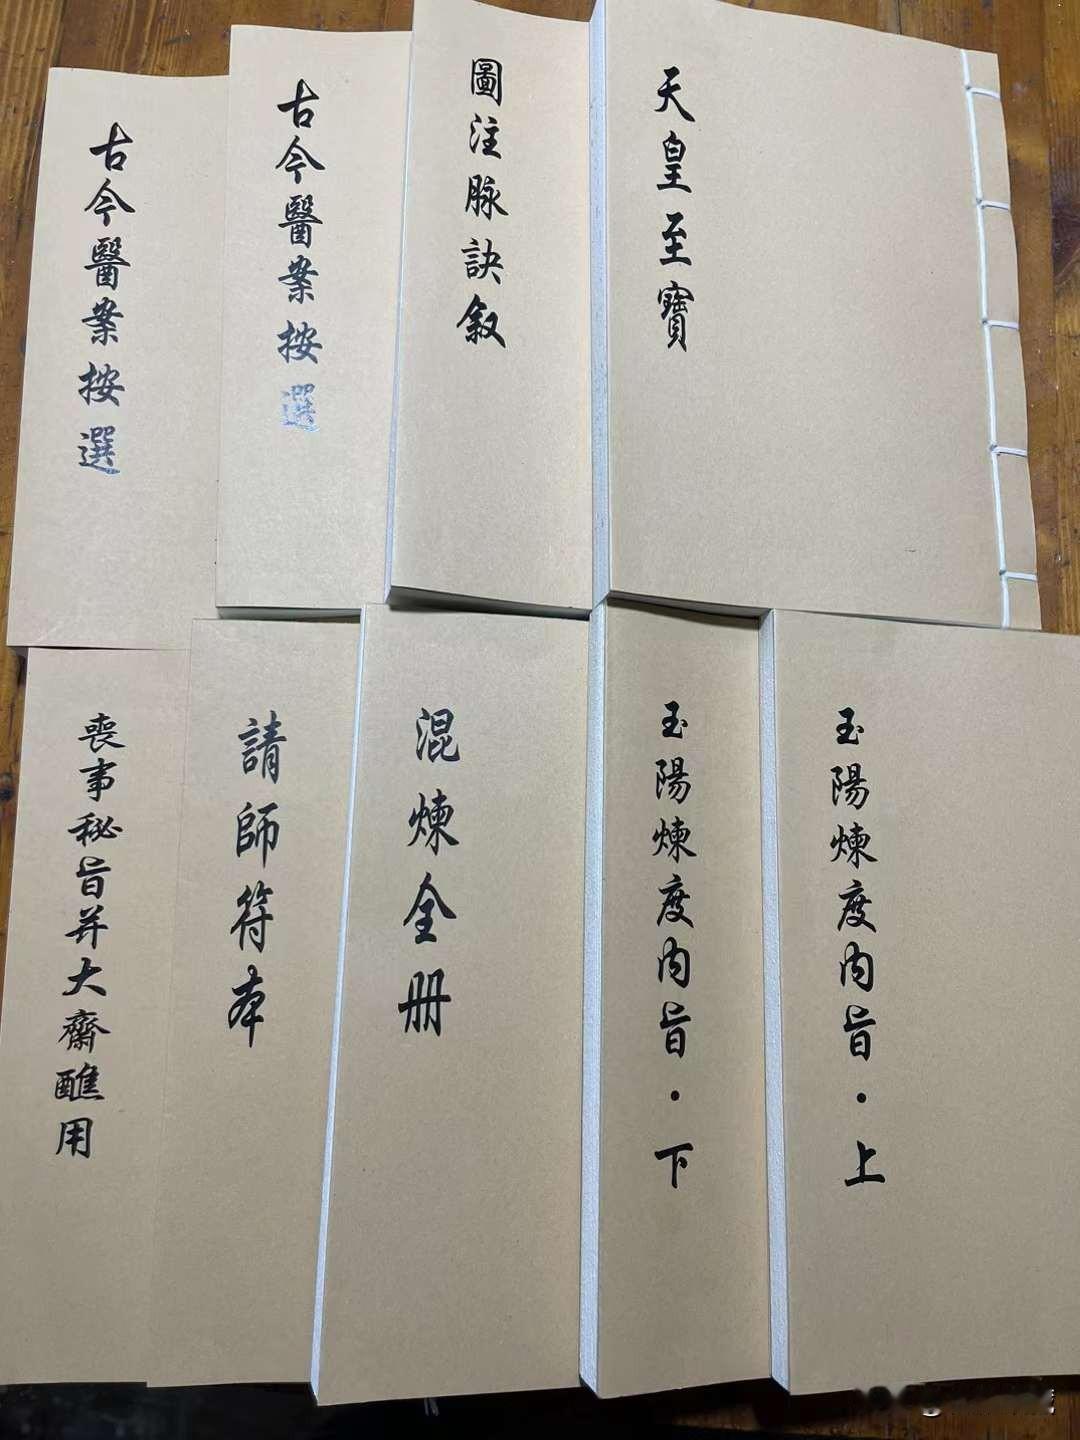 天皇至寶
圖注脉訣敘
古今醫案按選
古今醫案按選
玉陽煉度内旨·上
玉陽煉度内旨·下
混煉全册
請師符本
喪事秘旨并大齋醮用